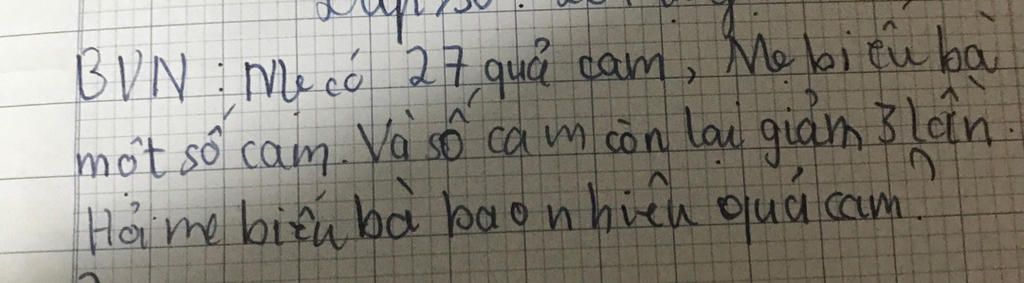 BVN: Mẹ có 27 quả cam, Mẹ biếu bà
một số cam. Và số cam còn lại giảm 3 lần.
Hỏi mẹ biếu bà bao nhiêu quả cam?